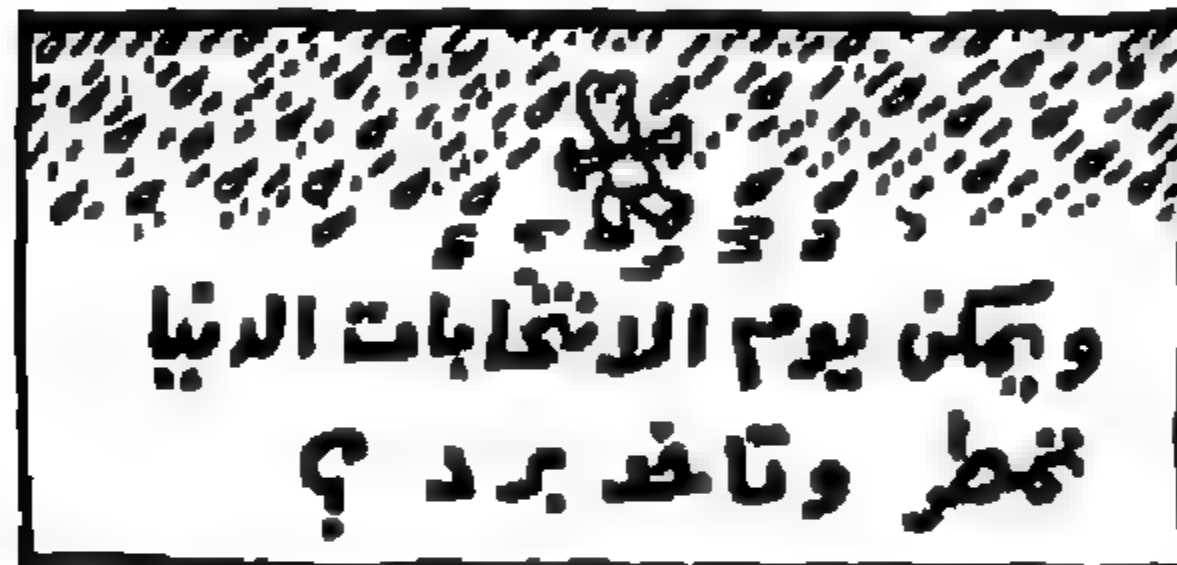 ويمكن يوم الانتخابات الدنيا
تمطر وتاخد برد ؟